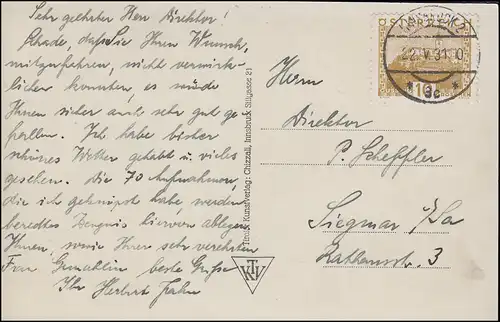 Sehr geehrter Herr Direktor!
Schade, daß Sie Ihren Wunsch,
mitzufahren, nicht verwirk-
lichen konnten, es würde
Ihnen sicher auch sehr gut ge-
fallen. Ich habe bisher
schönes Wetter gehabt u. vieles
gesehen. Die 70 Aufnahmen,
die ich geknipst habe werden
beredtes Zeugnis hiervon ablegen.
Ihnen, sowie Ihrer sehr verehrten
Frau Gemahlin beste Grüße
Ihr Herbert
Kunstverlag: Chizzali, Innsbruck, Stilgasse 21
KTV
INNSBRUCK 2
22.V.31.
* 9c *
Herrn
Direktor
P. Scheffler
Siegmar i/Sa
Rathausstr. 3